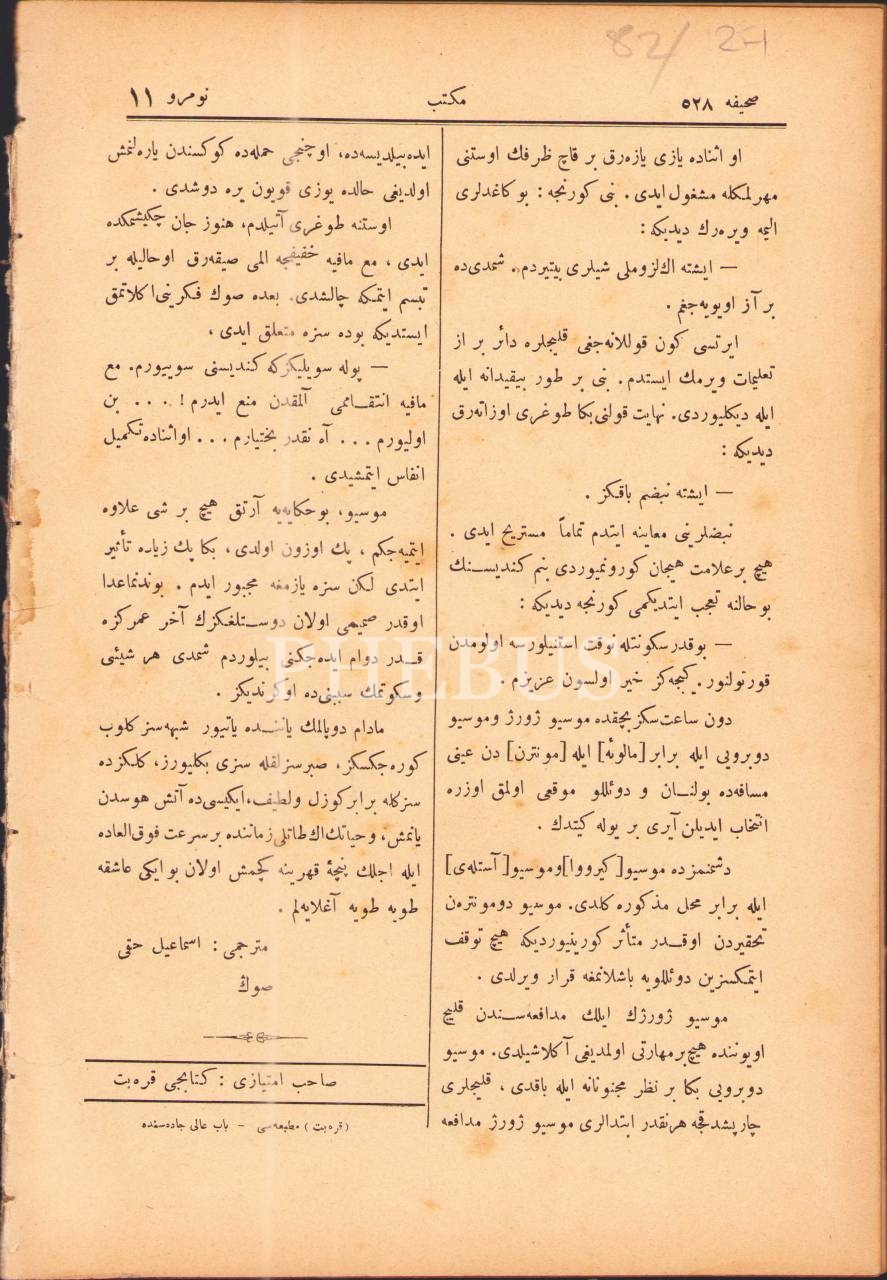 82/ 21
صحیفه ۵۲۸
مكتب
نومرو ۱۱
او اثناده یازی یازه‌رق بر قاچ ظرفك اوستنی
مهرلمكله مشغول ایدی. بنی كورنجه : بو كاغدلری
الیمه ویره‌رك دیدیكه :
— ایشته اك‌لزوملی شیلری بیتیردم. شمدی‌ده
بر آز اویویه‌جغم .
ایرتسی كون قوللانه‌جغی قلیجلره دائر بر از
تعلیمات ویرمك ایستدم. بنی بر طور بیقیدانه ایله
ایله دیكلیوردی. نهایت قولنی بكا طوغری اوزاته‌رق
دیدیكه :
— ایشته نبضم باقكز .
نبضلرینی معاینه ایتدم تماماً مستریح ایدی .
هیچ بر علامت هیجان كورونمیوردی بنم كندیسنك
بو حالنه تعجب ایتدیكمی كورنجه دیدیكه :
— بوقدر سكونتله نوقت استنیلورسه اولومدن
قورتولنور. كیجه‌كز خیر اولسون عزیزم .
دون ساعت سكز بچقده موسیو ژورژ وموسیو
دوبرویی ایله برابر [مالونه] ایله [مونترن] دن عینی
مسافه‌ده بولنـان و دوئللو موقعی اولمق اوزره
انتخاب ایدیلن آیری بر یوله كیتدك .
دشمنمزده موسیو [كیرووا] وموسیو [آستله‌ی]
ایله برابر محل مذكوره كلدی. موسیو دومونتره‌ن
تحقیردن اوقـدر متأثر كورینیوردیكه هیچ توقف
ایتمكسزین دوئللویه باشلانمغه قرار ویرلدی .
موسیو ژورژك ایلك مدافعه‌سـندن قلیج
اویوننده هیچ‌بر مهارتی اولمدیغی آكلاشیلدی. موسیو
دوبرویی بكا بر نظر مجنونانه ایله باقدی ، قلیجلری
چارپشدقجه هرنقدر ابتدالری موسیو ژورژ مدافعه
ایده‌بیلدیسه‌ده، اوچنجی حمله‌ده كوكسندن یاره‌لنمش
اولدیغی حالده یوزی قویون یره دوشدی .
اوستنه طوغری آتیلدم، هنوز جان چكیشمكده
ایدی ، مع مافیه خفیفجه المی صیقه‌رق اوحالیله بر
تبسم ایتمكه چالشدی. بعده صوك فكرینی اكلاتمق
ایستدیكه بوده سزه متعلق ایدی ،
— پوله سویلیكزكه كندیسنی سوییورم. مع
مافیه انتقـامی آلمقدن منع ایدرم ! ... بن
اولیورم ... آه نقدر بختیارم ... اواثناده تكمیل
انفاس ایتمشیدی .
موسیو، بوحكایه‌یه آرتق هیچ بر شی علاوه
ایتمیه‌جكم ، پك اوزون اولدی ، بكا پك زیاده تأثیر
ایتدی لكن سزه یازمغه مجبور ایدم . بوندنماعدا
اوقدر صمیمی اولان دوسـتلغكزك آخر عمركزه
قـدر دوام ایده‌جكنی بیلوردم شمدی هر شیئی
وسكوتمك سببنی‌ده اوكرندیكز .
مادام دوپالمك یاننـده یاتیور شبهه‌سز كلوب
كوره‌جكسكز ، صبرسزلقله سزی بكلیورز، كلكزده
سزكله برابر كوزل ولطیف، ایكیسی‌ده آتش هوسدن
یانمش، وحیاتك‌اك طاتلی زماننده بر سرعت فوق‌العاده
ایله اجلك پنچۀ قهرینه كچمش اولان بو ایكی عاشقه
طویه طویه آغلایه‌لم .
مترجمی : اسماعیل حقی
صوڭ
صاحب امتیازی : كتابجی قره‌بت
(قره‌بت) مطبعه‌سی - باب عالی جاده‌سنده
PHEBUS